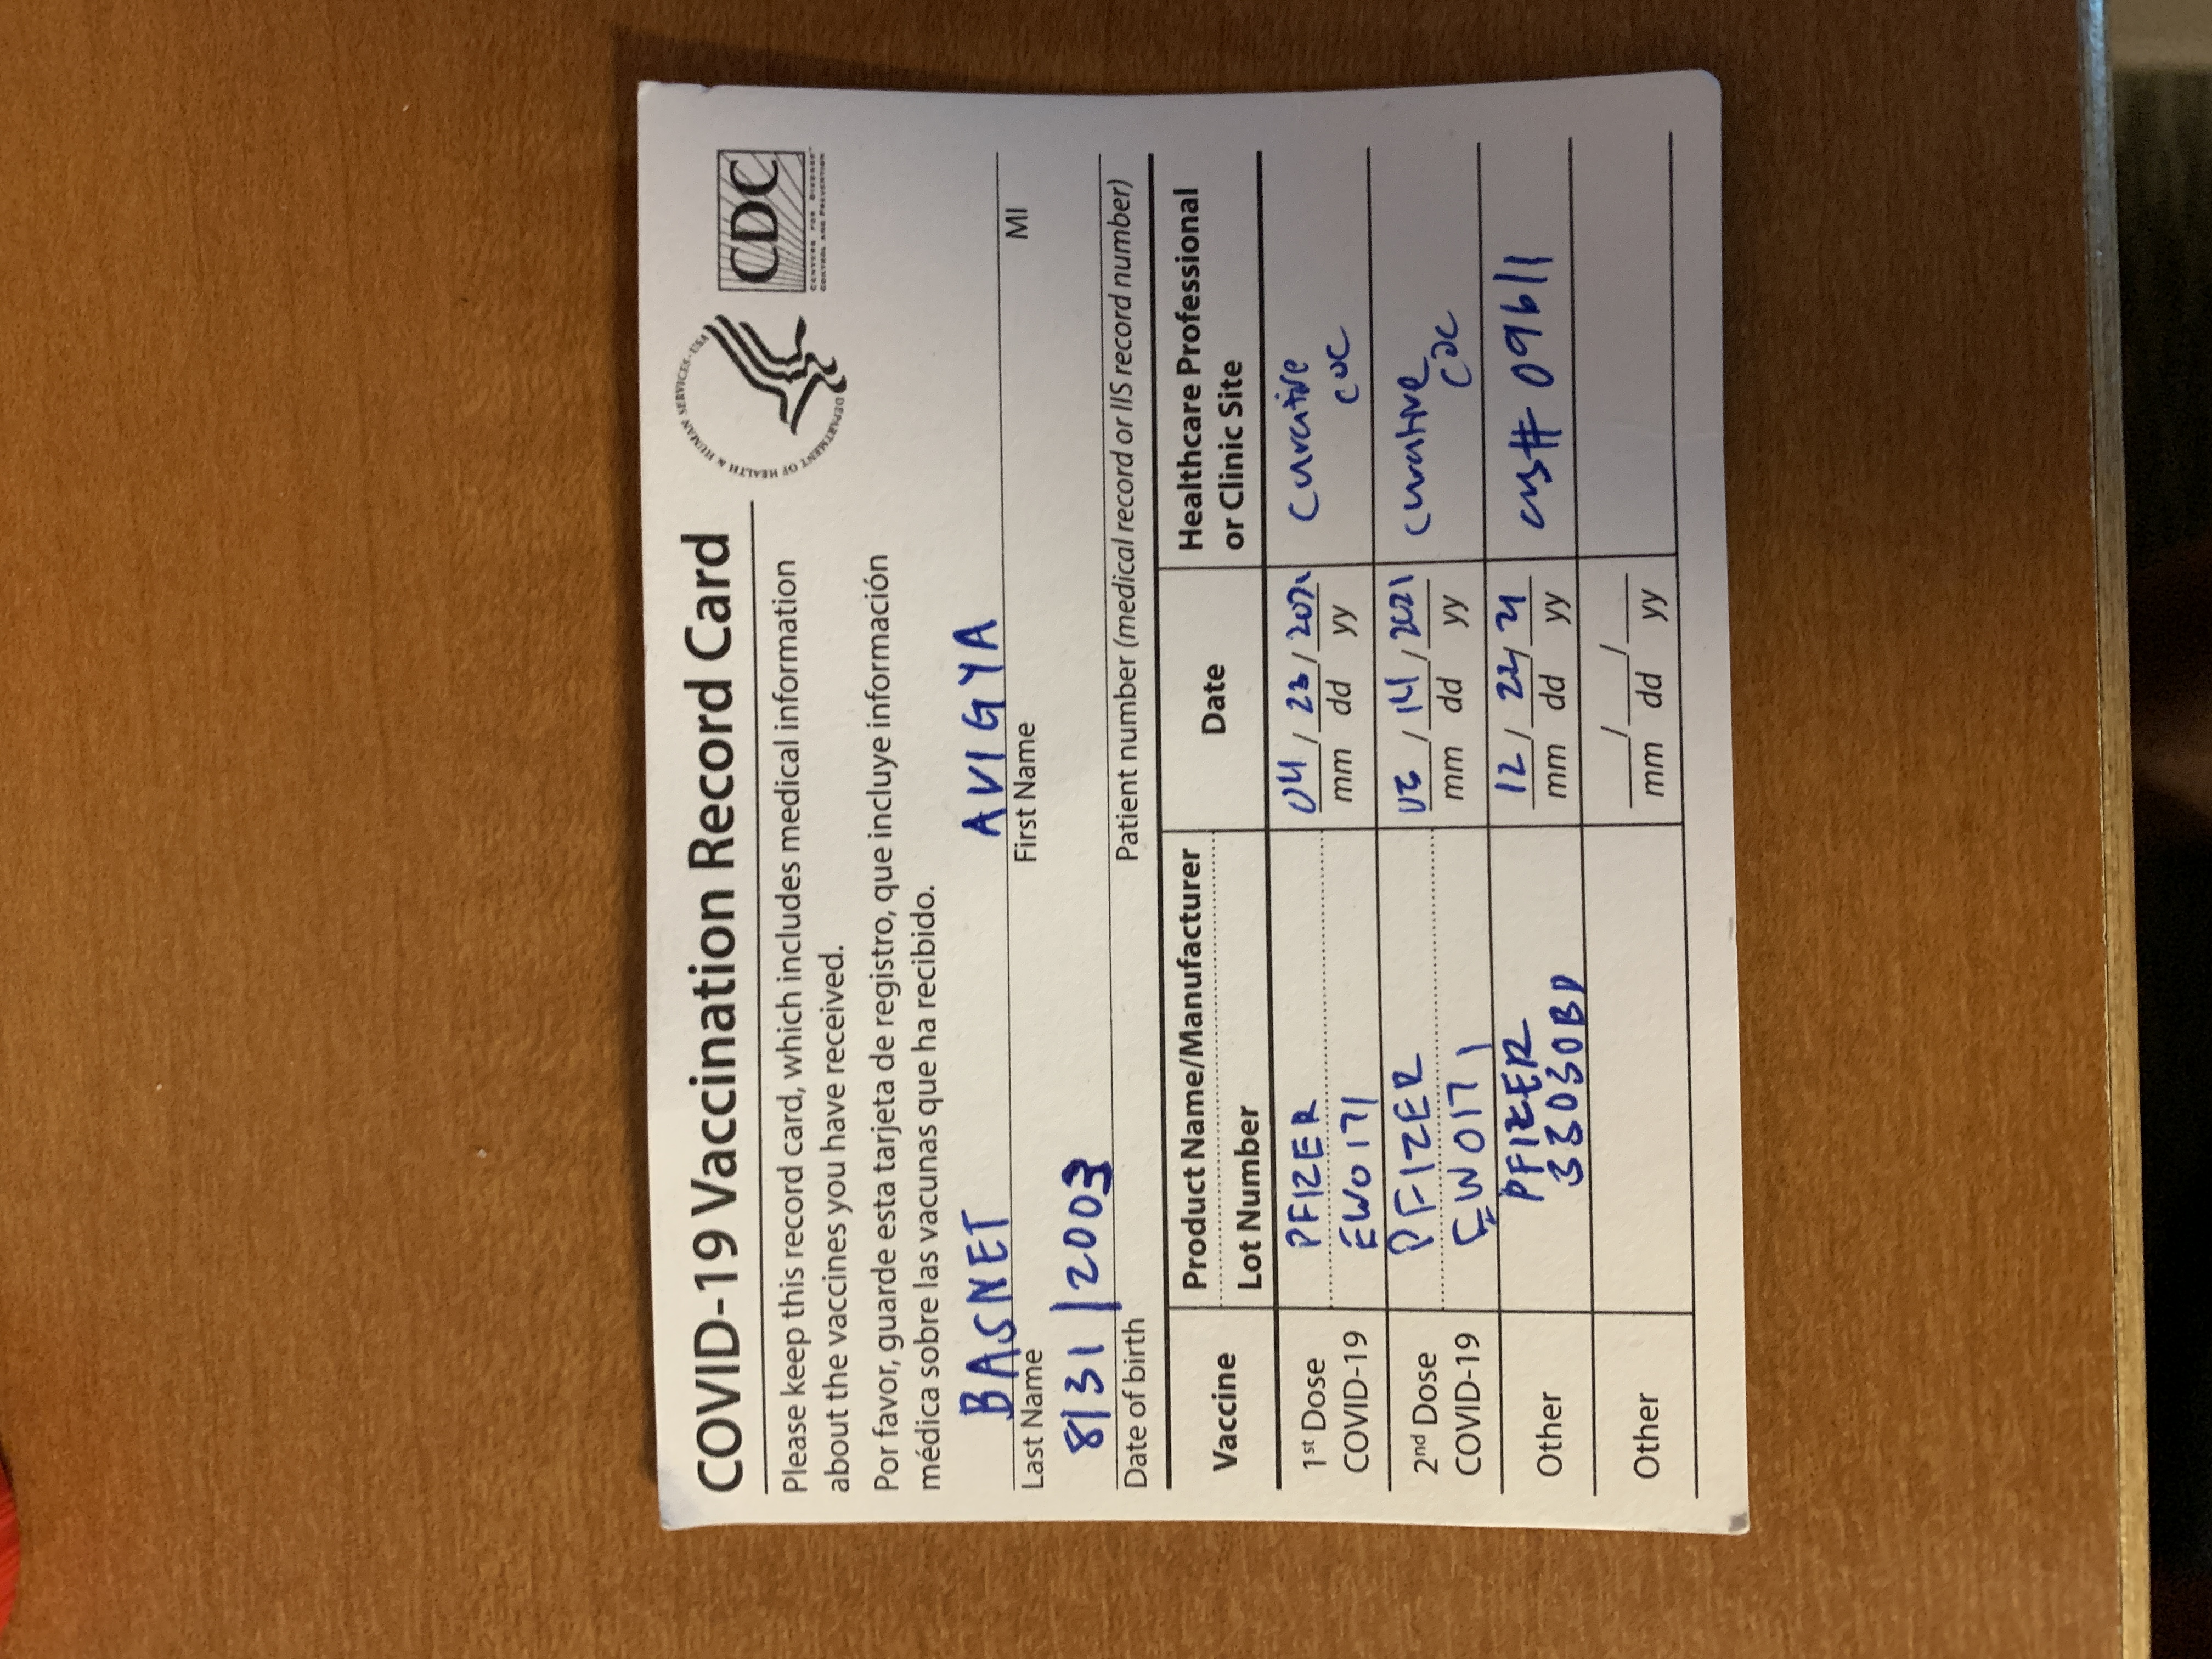 COVID-19 Vaccination Record Card
Please keep this record card, which includes medical information
about the vaccines you have received.
Por favor, guarde esta tarjeta de registro, que incluye información
médica sobre las vacunas que ha recibido.
DEPARTMENT OF HEALTH & HUMAN SERVICES · USA
CDC
CENTERS FOR DISEASE
CONTROL AND PREVENTION
BASNET AVIGYA
Last Name First Name MI
8/31/2003
Date of birth Patient number (medical record or IIS record number)
Vaccine
Product Name/Manufacturer
Lot Number
Date
Healthcare Professional
or Clinic Site
1st Dose
COVID-19
PFIZER
EW0171
04 / 23 /
mm dd yy
Curative
2nd Dose
COVID-19
PFIZER
EW0171
05 / 14 / 2021
mm dd yy
Curative
Other
PFIZER
33030BD
12 / 22 / 21
mm dd yy
cvs# 09611
Other
/ /
mm dd yy